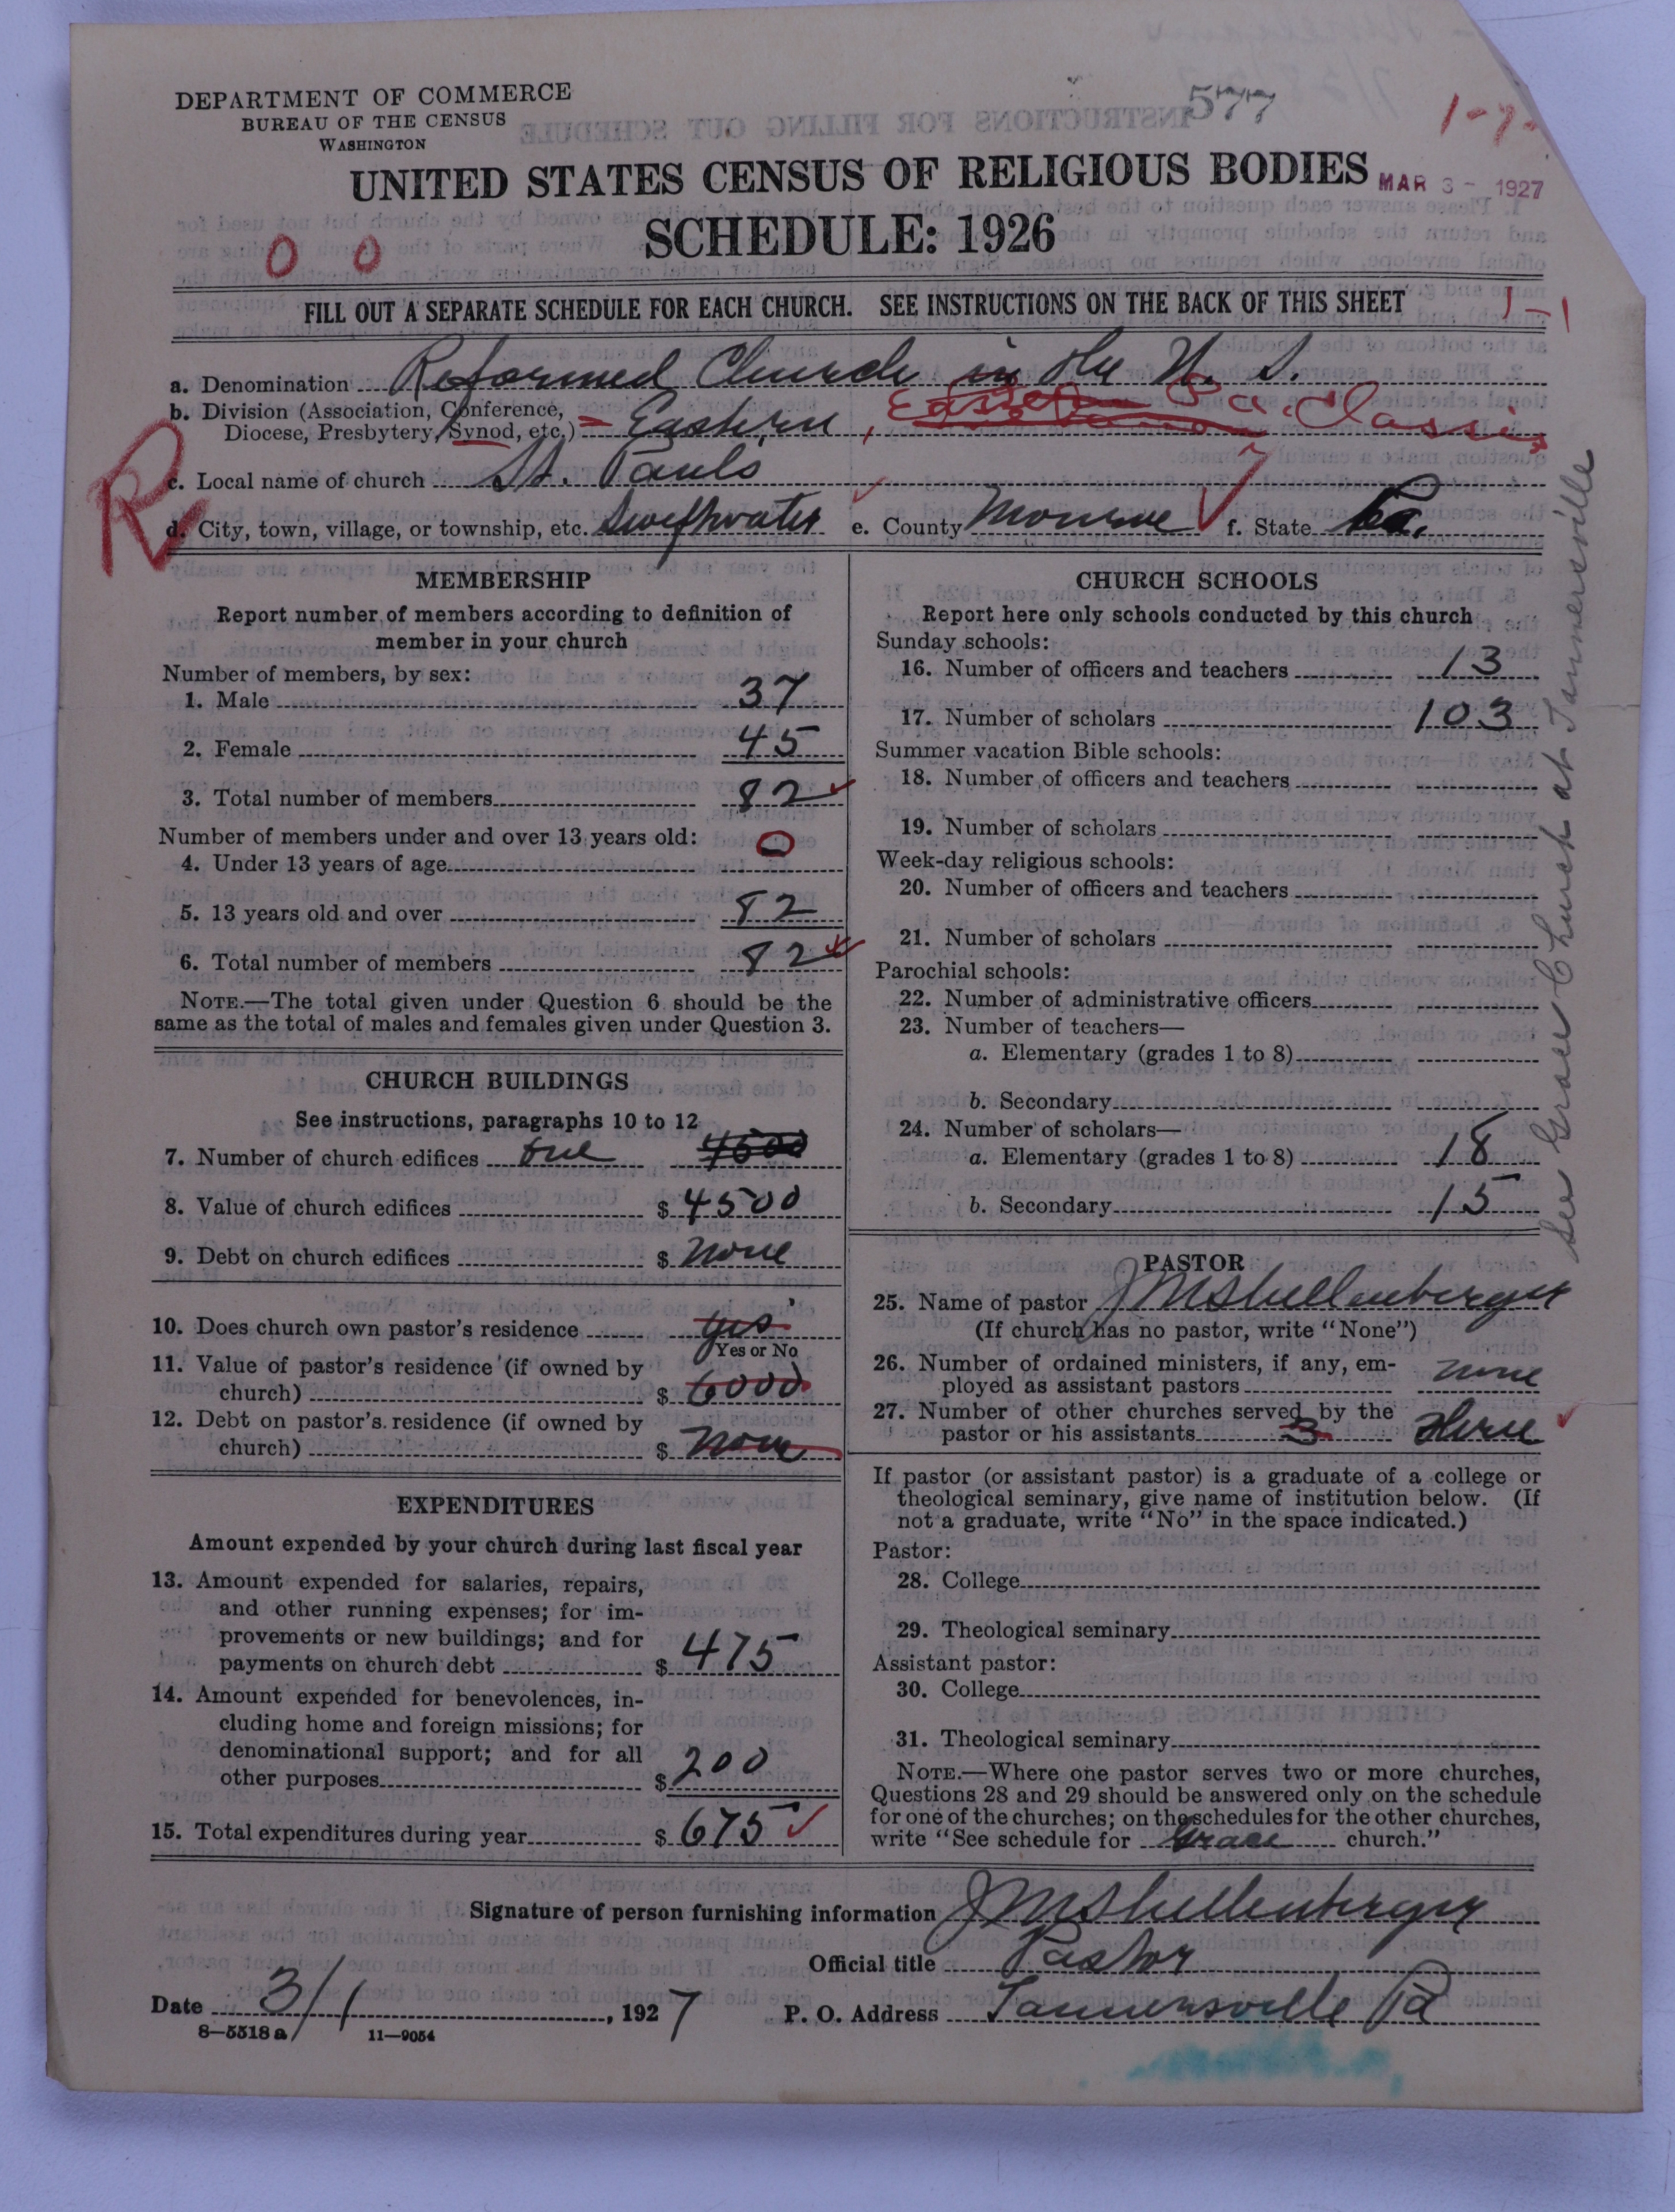 DEPARTMENT OF COMMERCE
BUREAU OF THE CENSUS
WASHINGTON
577
1-7-
UNITED STATES CENSUS OF RELIGIOUS BODIES
MAR 3 - 1927
SCHEDULE: 1926
0 0
FILL OUT A SEPARATE SCHEDULE FOR EACH CHURCH. SEE INSTRUCTIONS ON THE BACK OF THIS SHEET
1-1
a. Denomination Reformed Church in the U. S.
b. Division (Association, Conference,
Diocese, Presbytery, Synod, etc.) = Eastern, Pa. Classis
R
c. Local name of church St. Pauls
d. City, town, village, or township, etc. Swiftwater e. County Monroe f. State Pa.
MEMBERSHIP
Report number of members according to definition of
member in your church
Number of members, by sex:
1. Male 37
2. Female 45
3. Total number of members 82
Number of members under and over 13 years old:
4. Under 13 years of age 0
5. 13 years old and over 82
6. Total number of members 82
NOTE.—The total given under Question 6 should be the
same as the total of males and females given under Question 3.
CHURCH BUILDINGS
See instructions, paragraphs 10 to 12
7. Number of church edifices One 4500
8. Value of church edifices $ 4500
9. Debt on church edifices $ None
10. Does church own pastor's residence yes
Yes or No
11. Value of pastor's residence (if owned by
church) $ 6000
12. Debt on pastor's residence (if owned by
church) $ None
EXPENDITURES
Amount expended by your church during last fiscal year
13. Amount expended for salaries, repairs,
and other running expenses; for im-
provements or new buildings; and for
payments on church debt $ 475
14. Amount expended for benevolences, in-
cluding home and foreign missions; for
denominational support; and for all
other purposes $ 200
15. Total expenditures during year $ 675
CHURCH SCHOOLS
Report here only schools conducted by this church
Sunday schools:
16. Number of officers and teachers 13
17. Number of scholars 103
Summer vacation Bible schools:
18. Number of officers and teachers
19. Number of scholars
Week-day religious schools:
20. Number of officers and teachers
21. Number of scholars
Parochial schools:
22. Number of administrative officers
23. Number of teachers—
a. Elementary (grades 1 to 8)
b. Secondary
24. Number of scholars—
a. Elementary (grades 1 to 8) 18
b. Secondary 15
PASTOR
25. Name of pastor J M Shellenberger
(If church has no pastor, write "None")
26. Number of ordained ministers, if any, em-
ployed as assistant pastors none
27. Number of other churches served by the
pastor or his assistants 3 three
If pastor (or assistant pastor) is a graduate of a college or
theological seminary, give name of institution below. (If
not a graduate, write "No" in the space indicated.)
Pastor:
28. College
29. Theological seminary
Assistant pastor:
30. College
31. Theological seminary
NOTE.—Where one pastor serves two or more churches,
Questions 28 and 29 should be answered only on the schedule
for one of the churches; on the schedules for the other churches,
write "See schedule for Grace church."
See Grace Church at Tannersville
Signature of person furnishing information J M Shellenberger
Official title Pastor
Date 3/1, 1927 P. O. Address Tannersville Pa
8—5518 a 11—9054